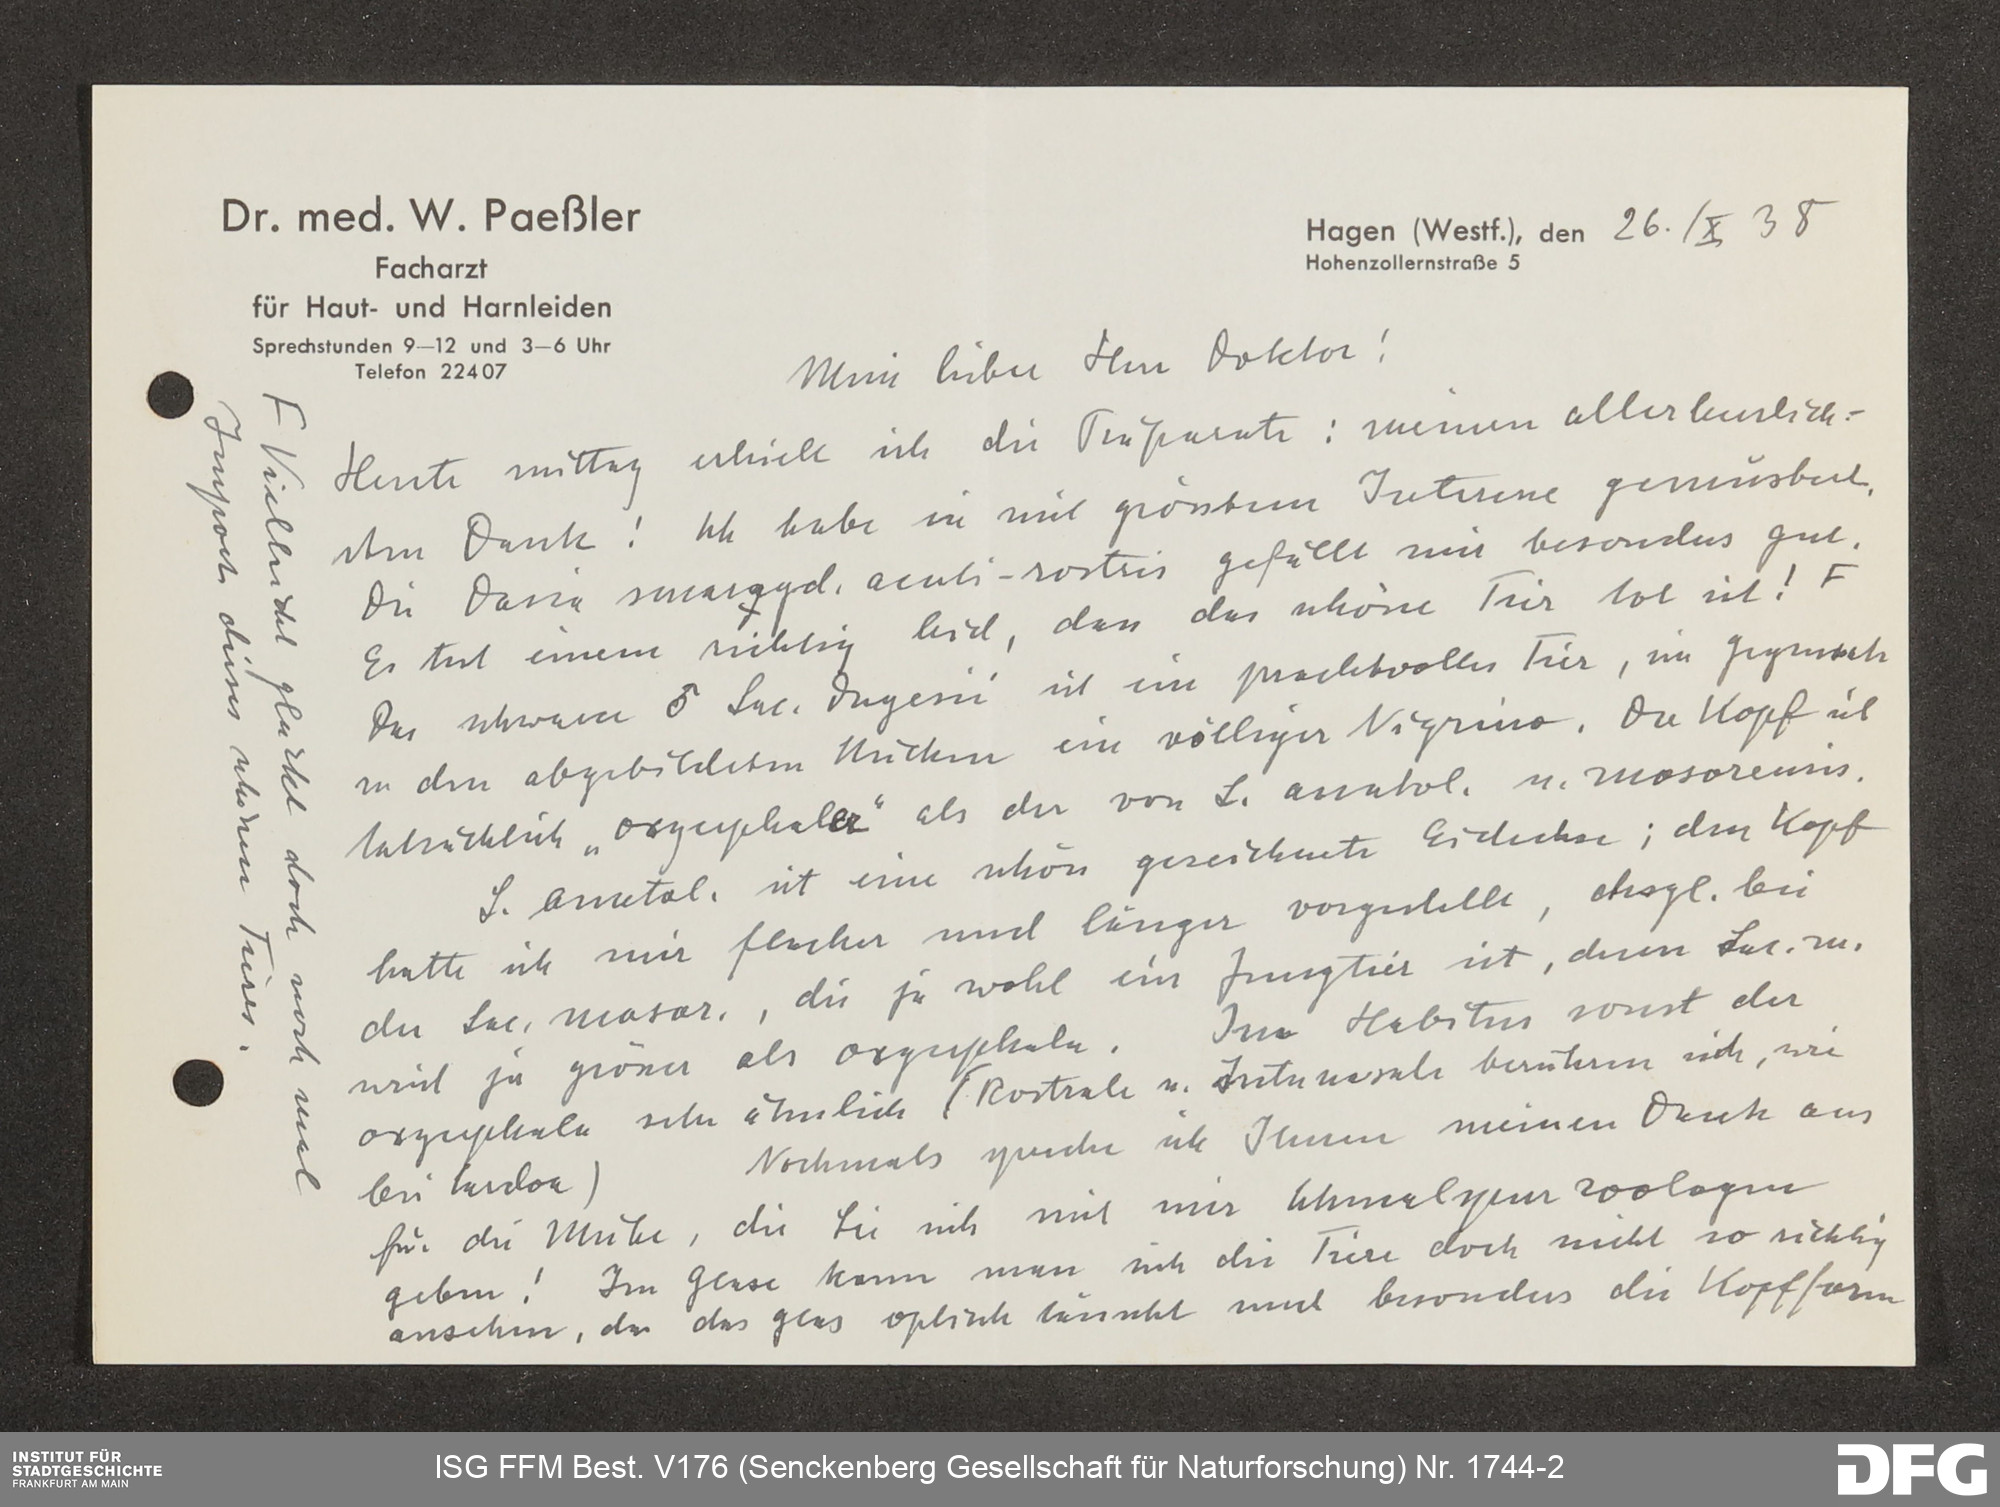 Dr. med. W. Paeßler
Facharzt
für Haut- und Harnleiden
Sprechstunden 9—12 und 3—6 Uhr
Telefon 22407
Hagen (Westf.), den 26./X 38
Hohenzollernstraße 5
Mein lieber Herr Doktor!
Heute mittag erhielt ich die Präparate: meinen allerherzlich-
sten Dank! Ich habe sie mit grösstem Interesse gemustert.
Die Dasia smaragd. acuti-rostris gefällt mir besonders gut.
Es tut einem richtig leid, dass das schöne Tier tot ist! F
Das schwarze ♂ Lac. Dugesii ist ein prachtvolles Tier, im Gegensatz
zu den abgebildeten Stücken ein völliger Nigrino. Der Kopf ist
tatsächlich „oxycephaler“ als der von L. anatol. u. mosorensis.
L. anatol. ist eine schön gezeichnete Eidechse; den Kopf
hatte ich mir flacher und länger vorgestellt, desgl. bei
der Lac. mosor., die ja wohl ein Jungtier ist, denn Lac. m.
wird ja grösser als oxycephala. Im Habitus sonst der
oxycephala sehr ähnlich (Rostrale u. Internasale berühren sich, wie
bei sardoa) Nochmals spreche ich Ihnen meinen Dank aus
für die Mühe, die Sie sich mit mir Schmalspurzoologen
geben! Im Glase kann man sich die Tiere doch nicht so richtig
ansehen, da das Glas optisch täuscht und besonders die Kopfform
F Vielleicht glückt doch noch mal
Import dieses schönen Tieres.
INSTITUT FÜR
STADTGESCHICHTE
FRANKFURT AM MAIN
ISG FFM Best. V176 (Senckenberg Gesellschaft für Naturforschung) Nr. 1744-2
DFG